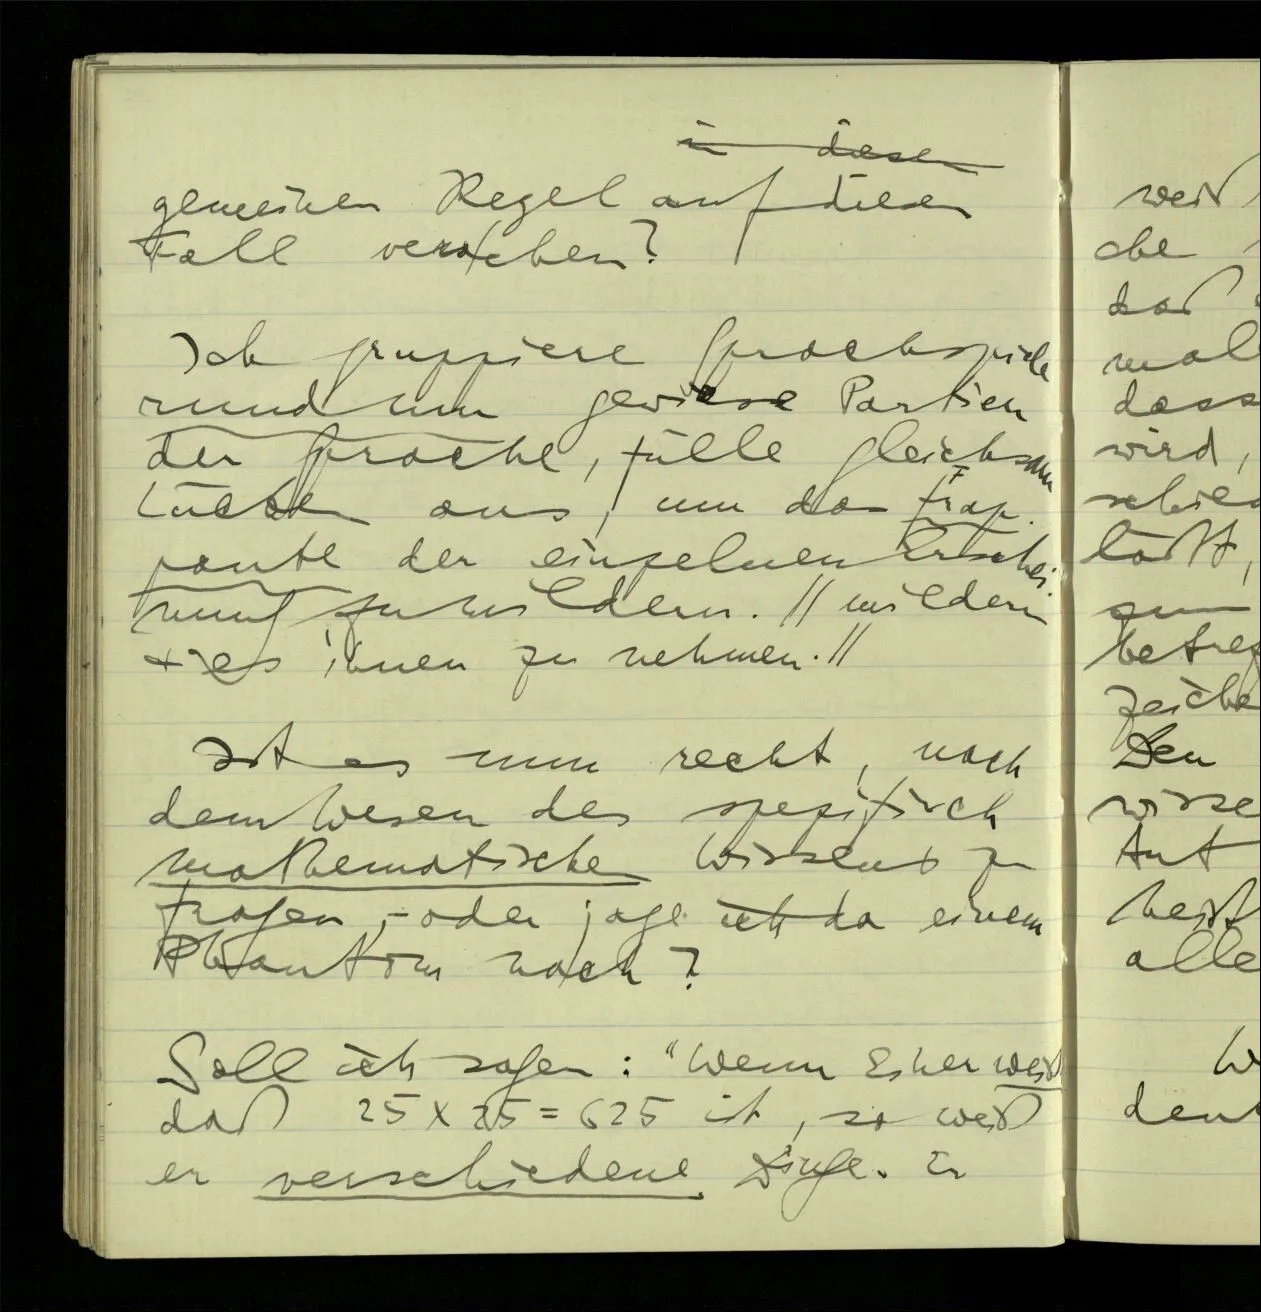 in diesen
gemeinen Regel auf diesen
Fall verstehen?
Ich gruppiere Sprachspiele
rund um gewisse Partien
der Sprache, fülle gleichsam
Lücken aus, um das Frap-
pante der einzelnen Erschei-
nung zu mildern. // mildern
+ es ihnen zu nehmen. //
Ist es nun recht, nach
dem Wesen des spezifisch
mathematischen Wissens zu
fragen, – oder jage ich da einem
Phantom nach?
Soll ich sagen: "Wenn Einer weiß
daß 25 x 25 = 625 ist, so weiß
er verschiedene Dinge. Er
weiß
che
daß
mal
dass
wird,
schied
läßt,
zum
betref
zeiche
Den
wisse
Ant
heißt
alle
W
denk